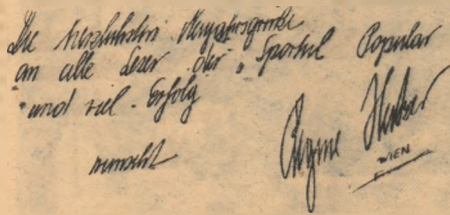 Die herzlichsten Neujahrsgrüße
an alle Leser der "Sportul Popular
und viel Erfolg
wünscht
WIEN